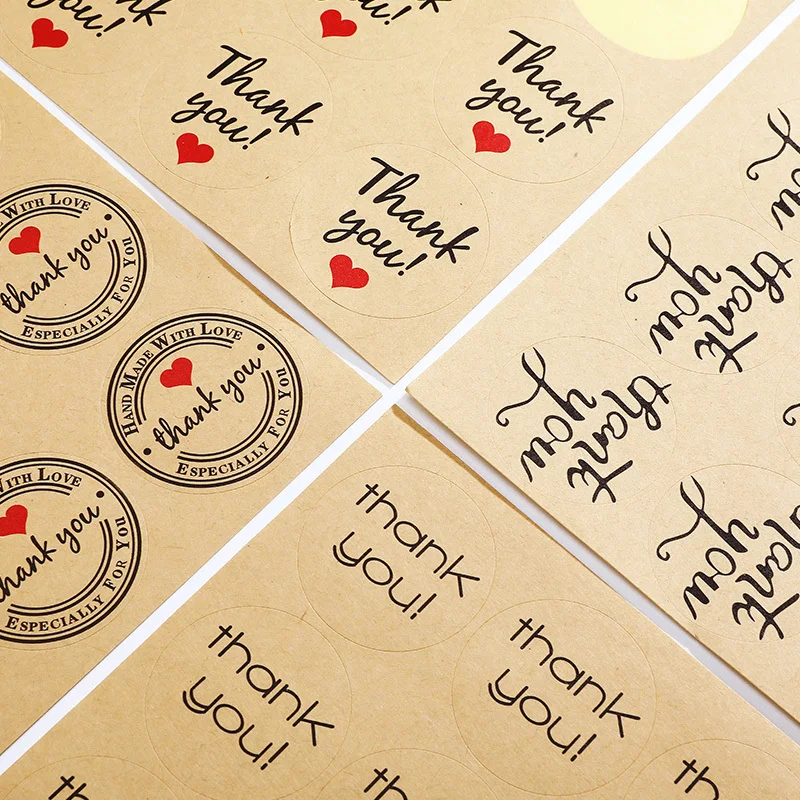 Thank
you!
Thank
you!
Thank
you!
you!
you!
WITH LOVE
thank you
ESPECIALLY FOR YOU
HAND MADE WITH LOVE
thank you
ESPECIALLY FOR YOU
WITH LOVE
thank you
ESPECIALLY FOR YOU
thank
you
thank
you
thank
you
you
thank
you!
thank
you!
thank
you!
th
th
th